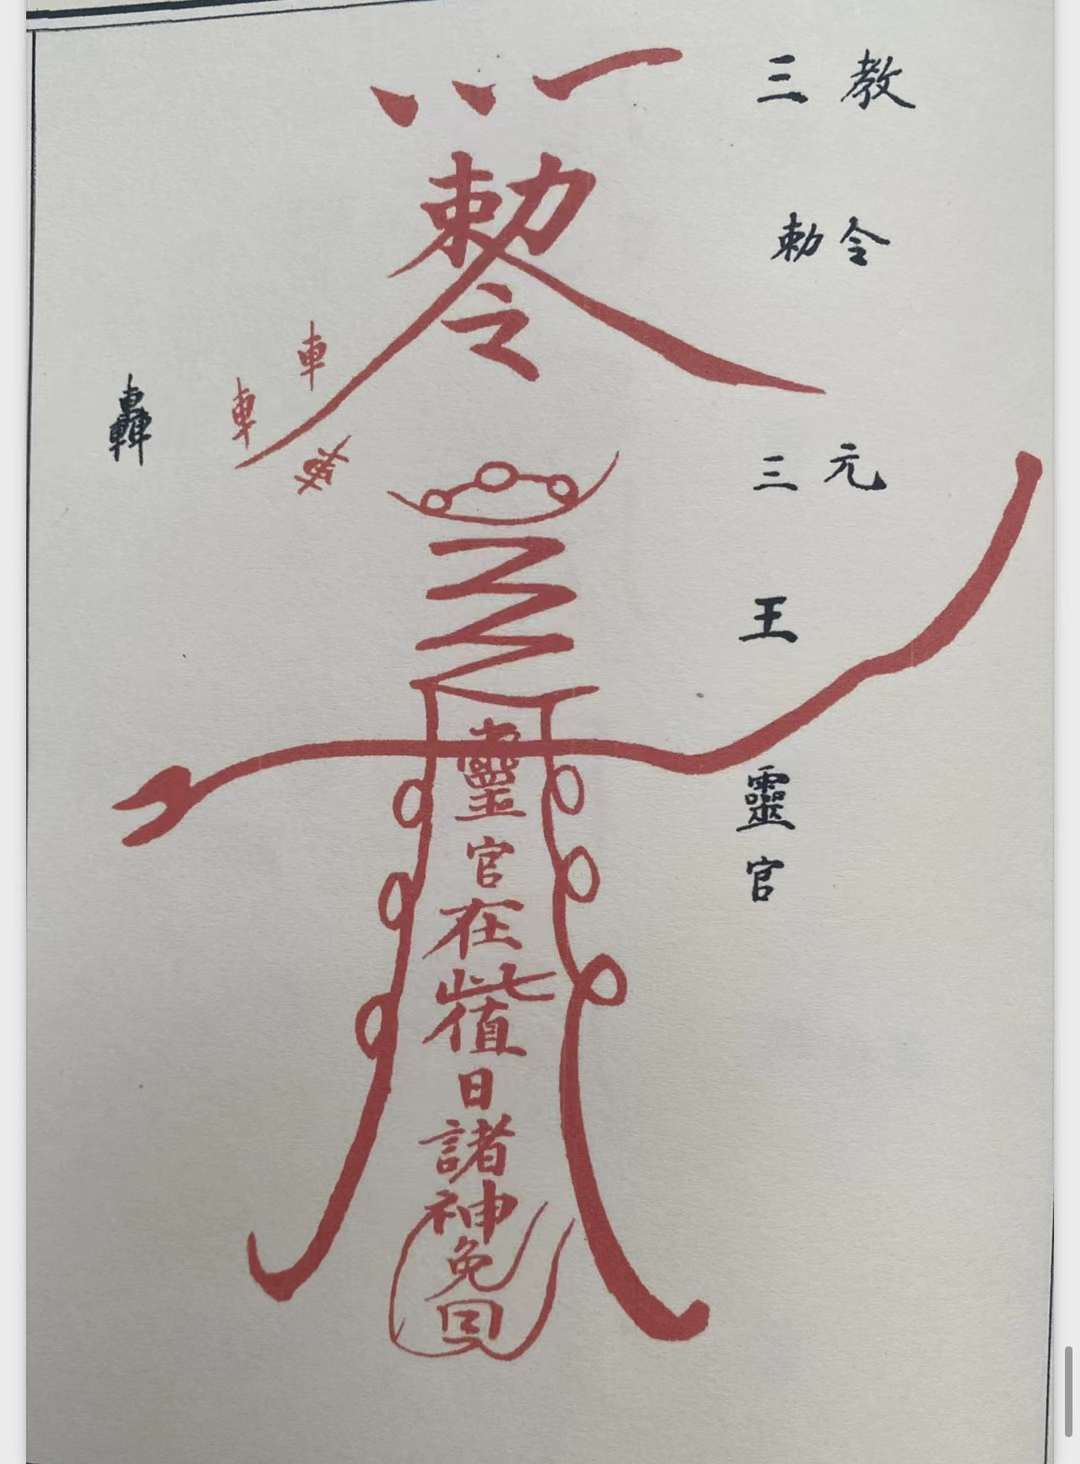 三教
勅令
勅令
車
車
車
轟
三元
王
靈
官
靈
官
在
此
值
日
諸
神
免
回